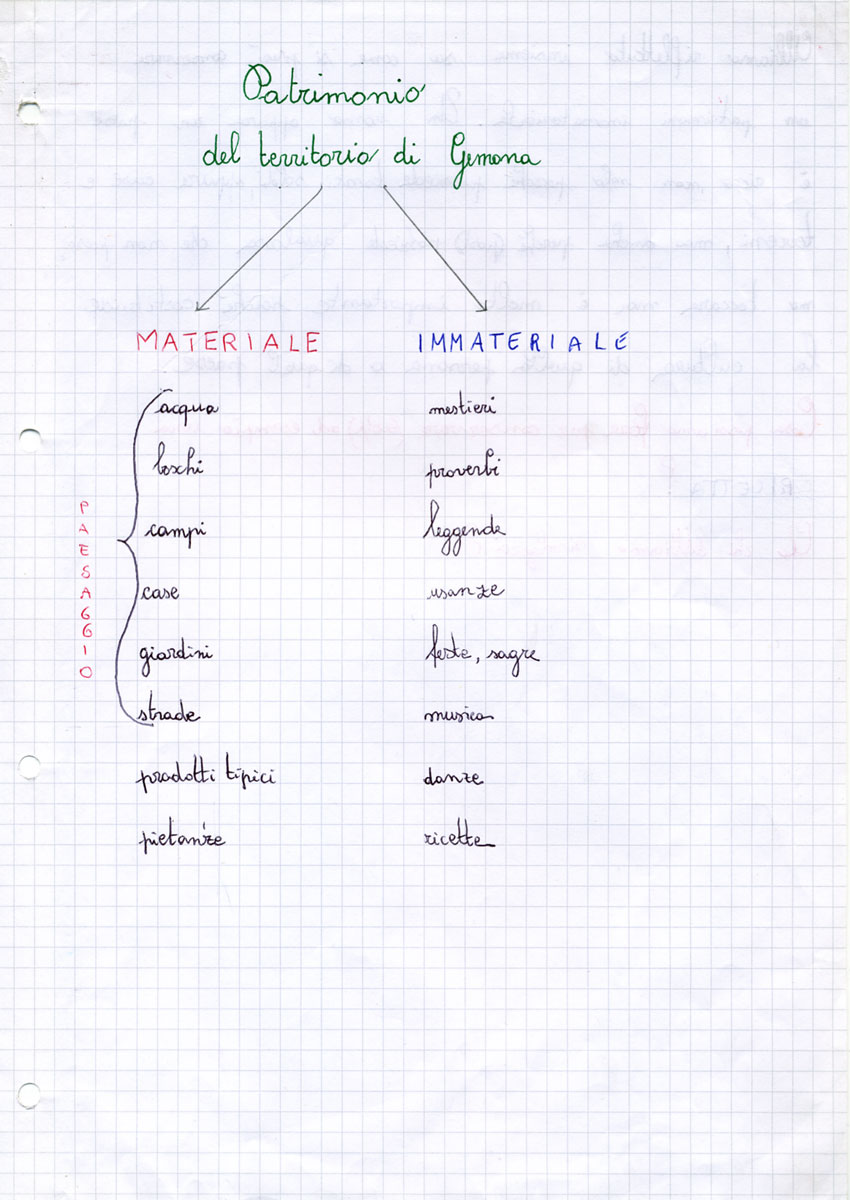 Patrimonio
del territorio di Gemona
MATERIALE
IMMATERIALE
PAESAGGIO
acqua
boschi
campi
case
giardini
strade
prodotti tipici
pietanze
mestieri
proverbi
leggende
usanze
feste, sagre
musica
danze
ricette